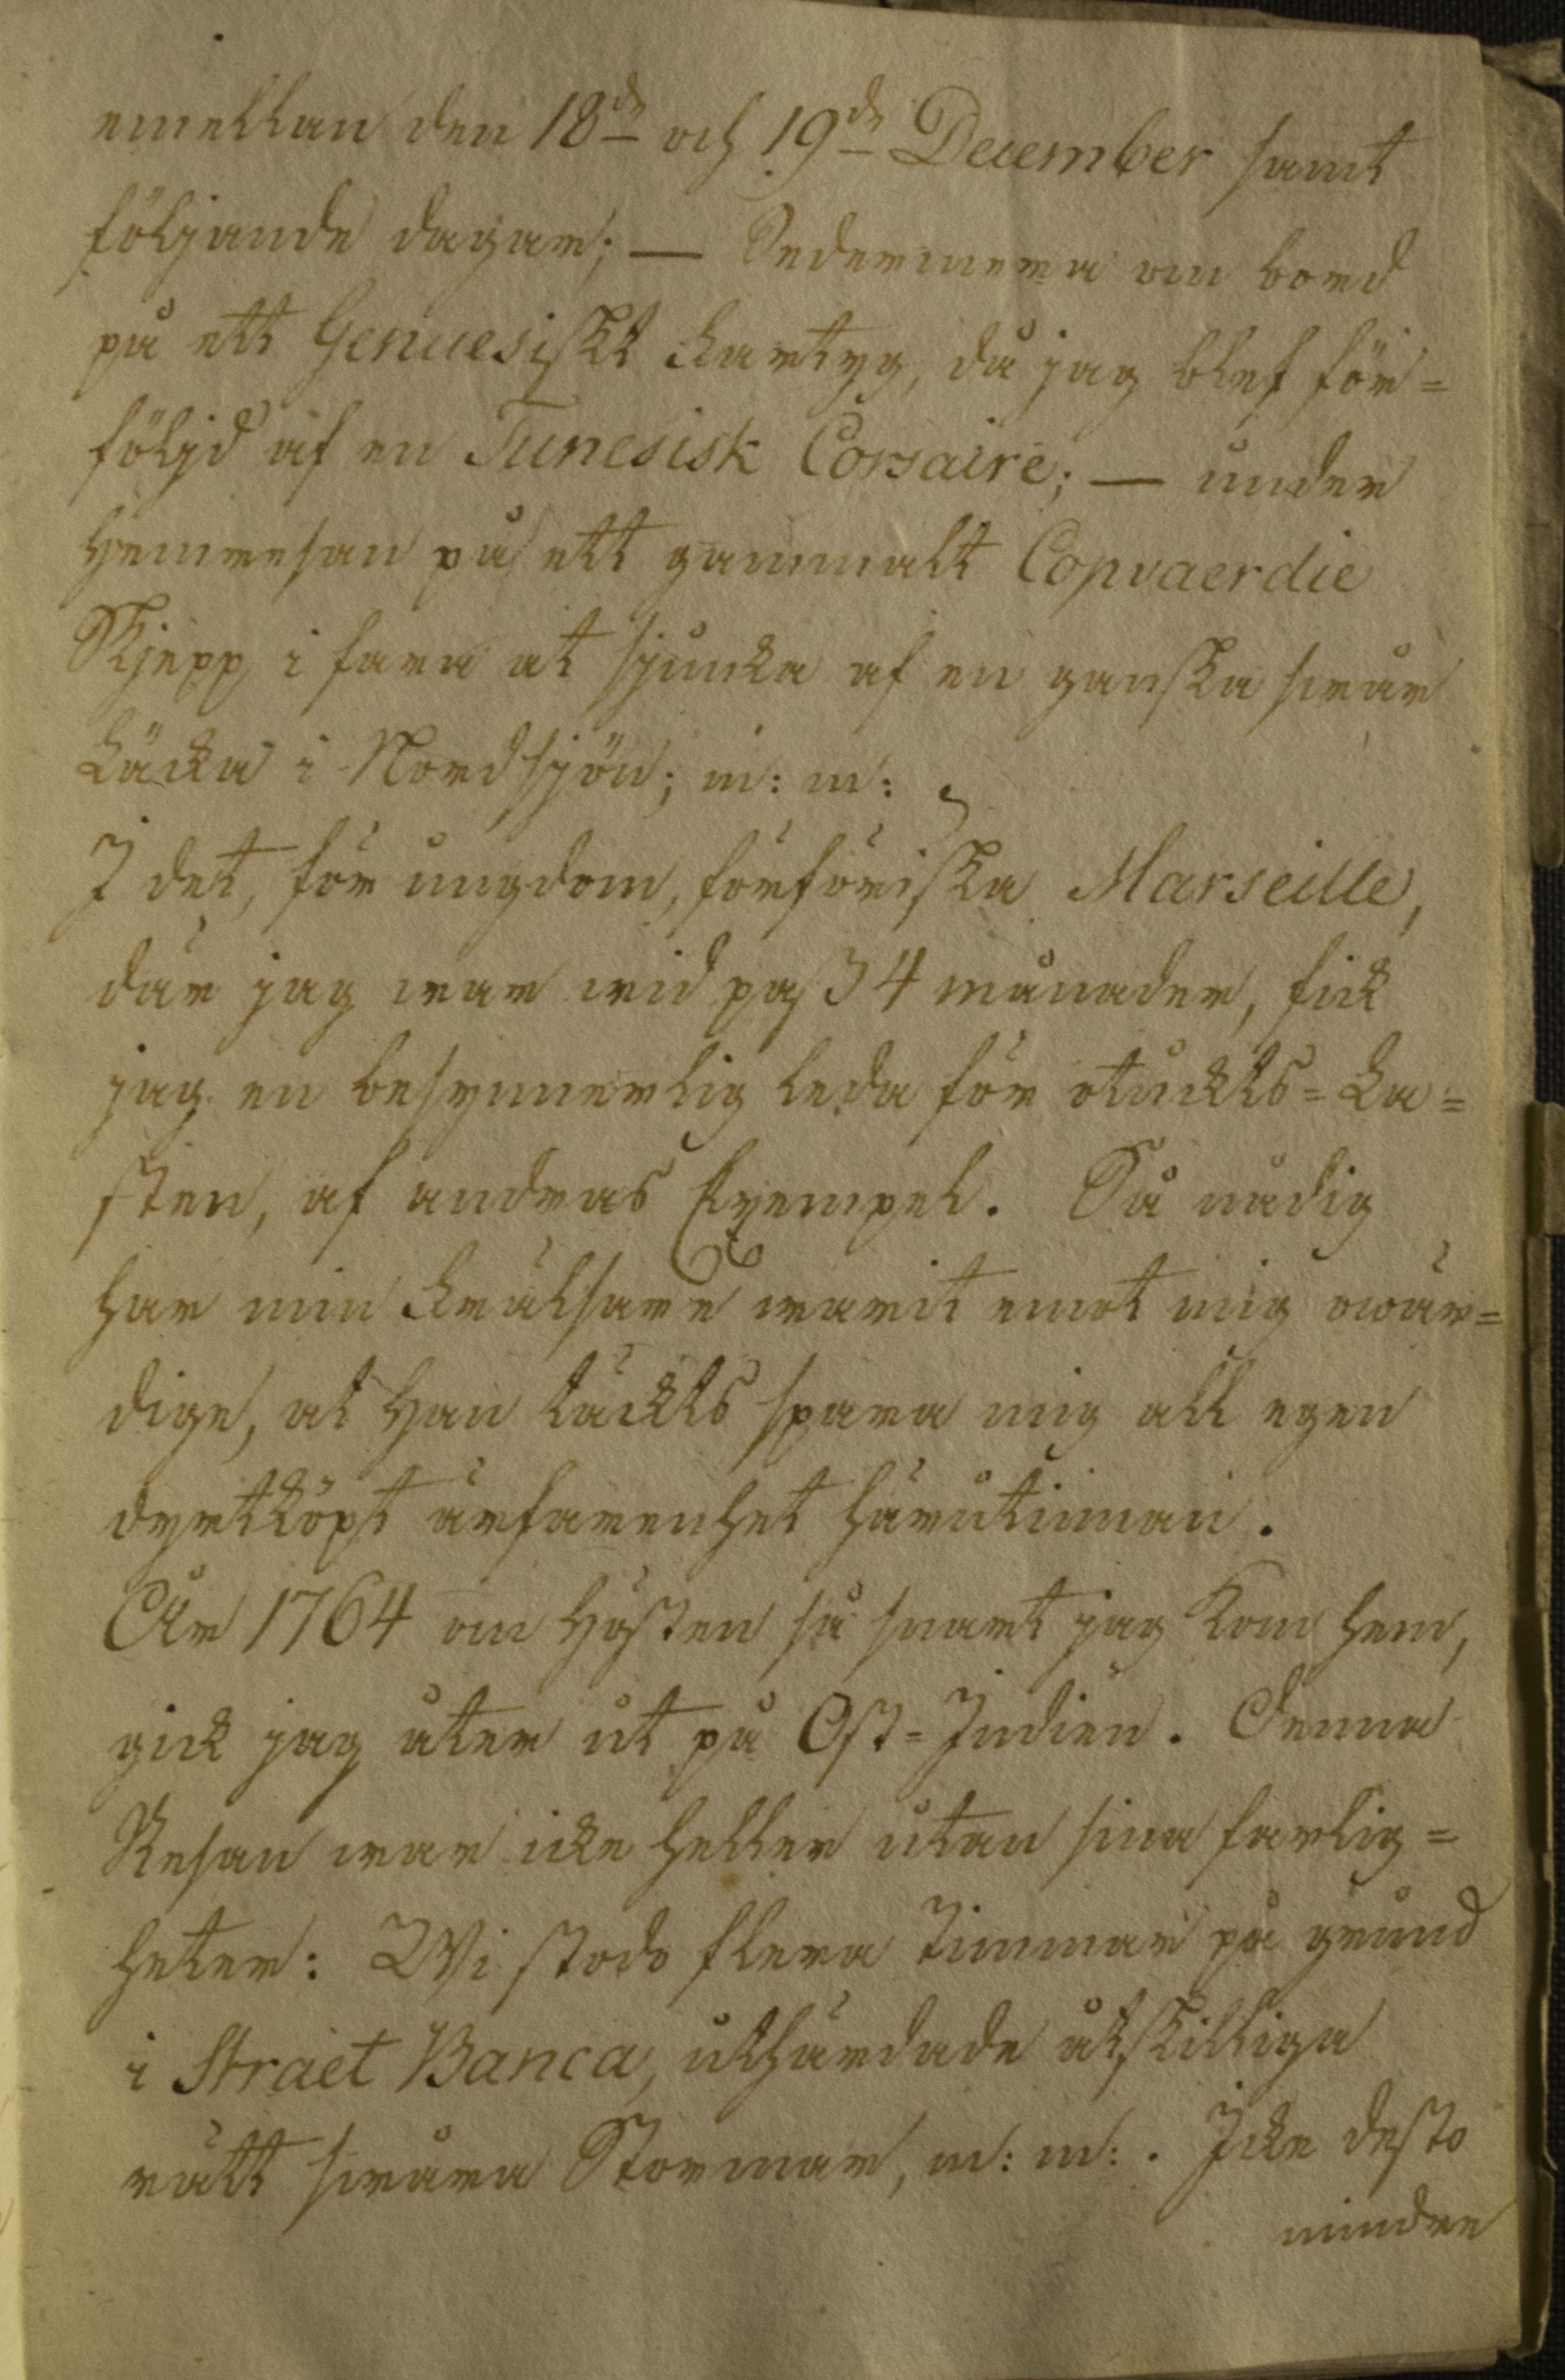 emellan den 18de och 19de December samt
följande dagar; — Sedermera om bord
på ett Genuesiskt Kartyg, då jag blef för=
följd af en Tunesisk Corsaire; — under
Hemresan på ett gammalt Copvaerdie
Skjepp i fara at sjuncka af en ganska swår
Läcka i Nordsjön; m: m:
I det, för ungdom, förföriska Marseille,
där jag war wid pass 4 månader, fick
jag en besynnerlig leda för otuckts=La=
sten, af andras Exempel. Så nådig
har min Frälsare warit emot mig owär=
dige, at Han täckts spara mig all egen
dyrtköpt ärfarenhet härutinnan.
År 1764 om Hösten så snart jag kom hem,
gick jag åter ut på Ost=Indien. Denna
Resan war icke heller utan sina farlig=
heter: Wi stodo flera Timmar på grund
i Straet Banca, uthärdade åtskilliga
rätt swåra Stormar, m: m: . Icke desto
mindre